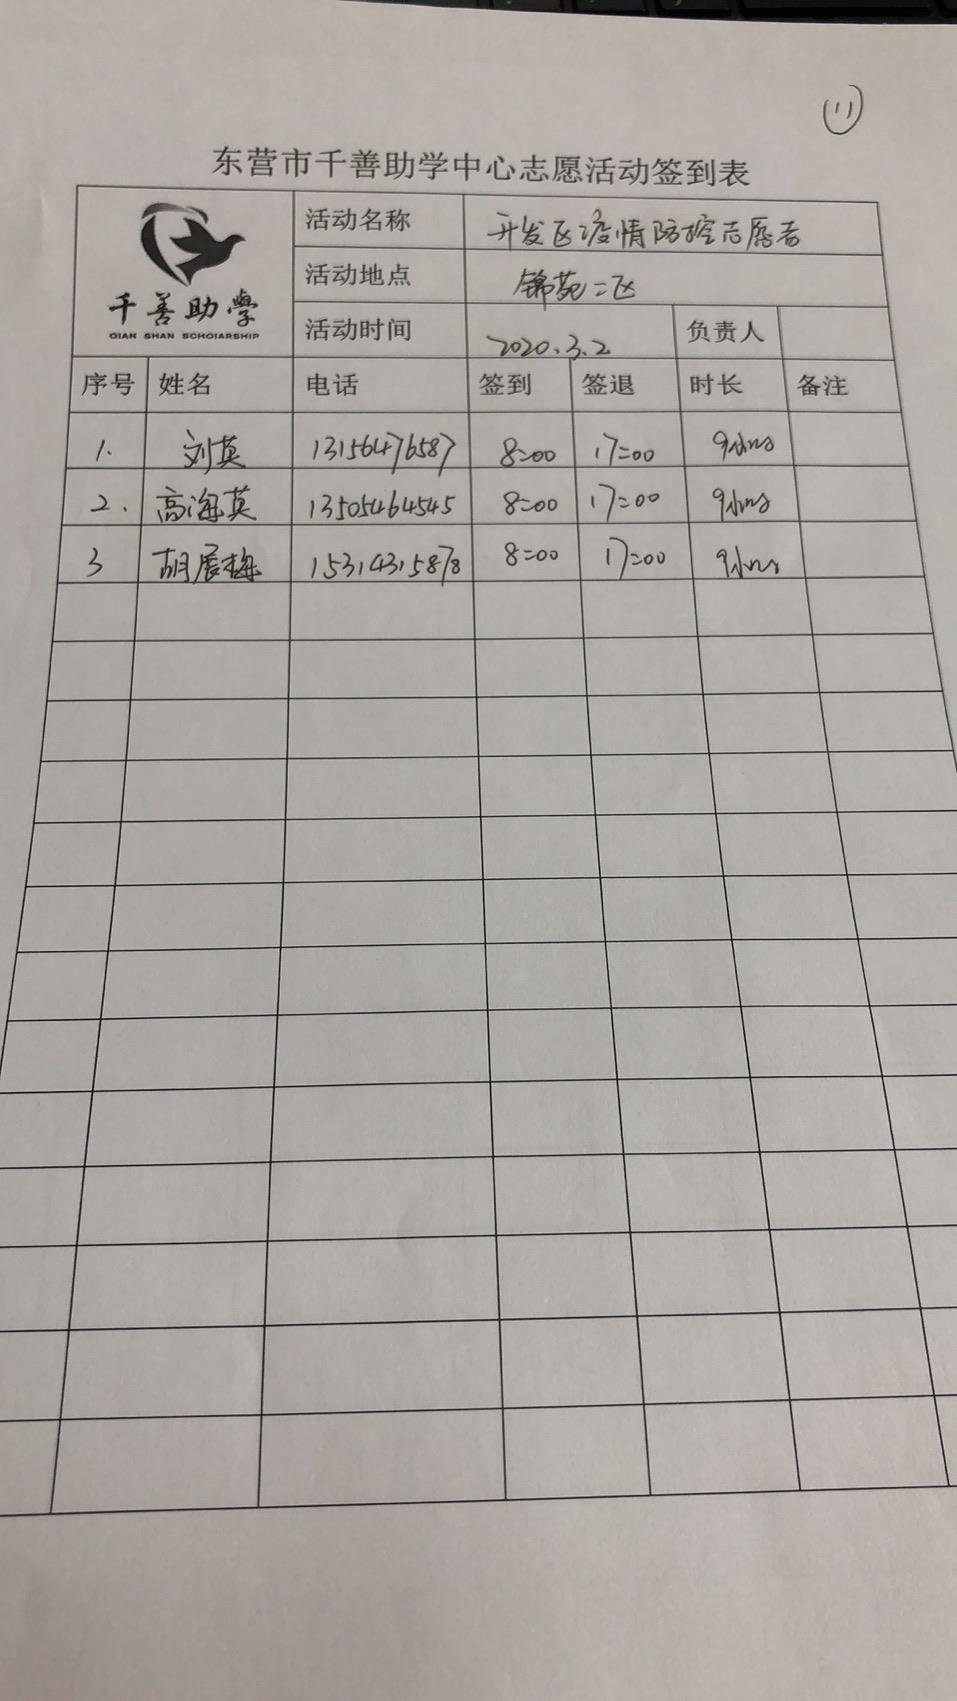 11
东营市千善助学中心志愿活动签到表
千善助學
QIAN SHAN SCHOIARSHIP
活动名称 开发区疫情防控志愿者
活动地点 锦苑二区
活动时间 2020.3.2 负责人
序号 姓名 电话 签到 签退 时长 备注
1. 刘英 13156476587 8:00 17:00 9小时
2. 高海英 13505464545 8:00 17:00 9小时
3 胡展梅 15314315878 8:00 17:00 9小时